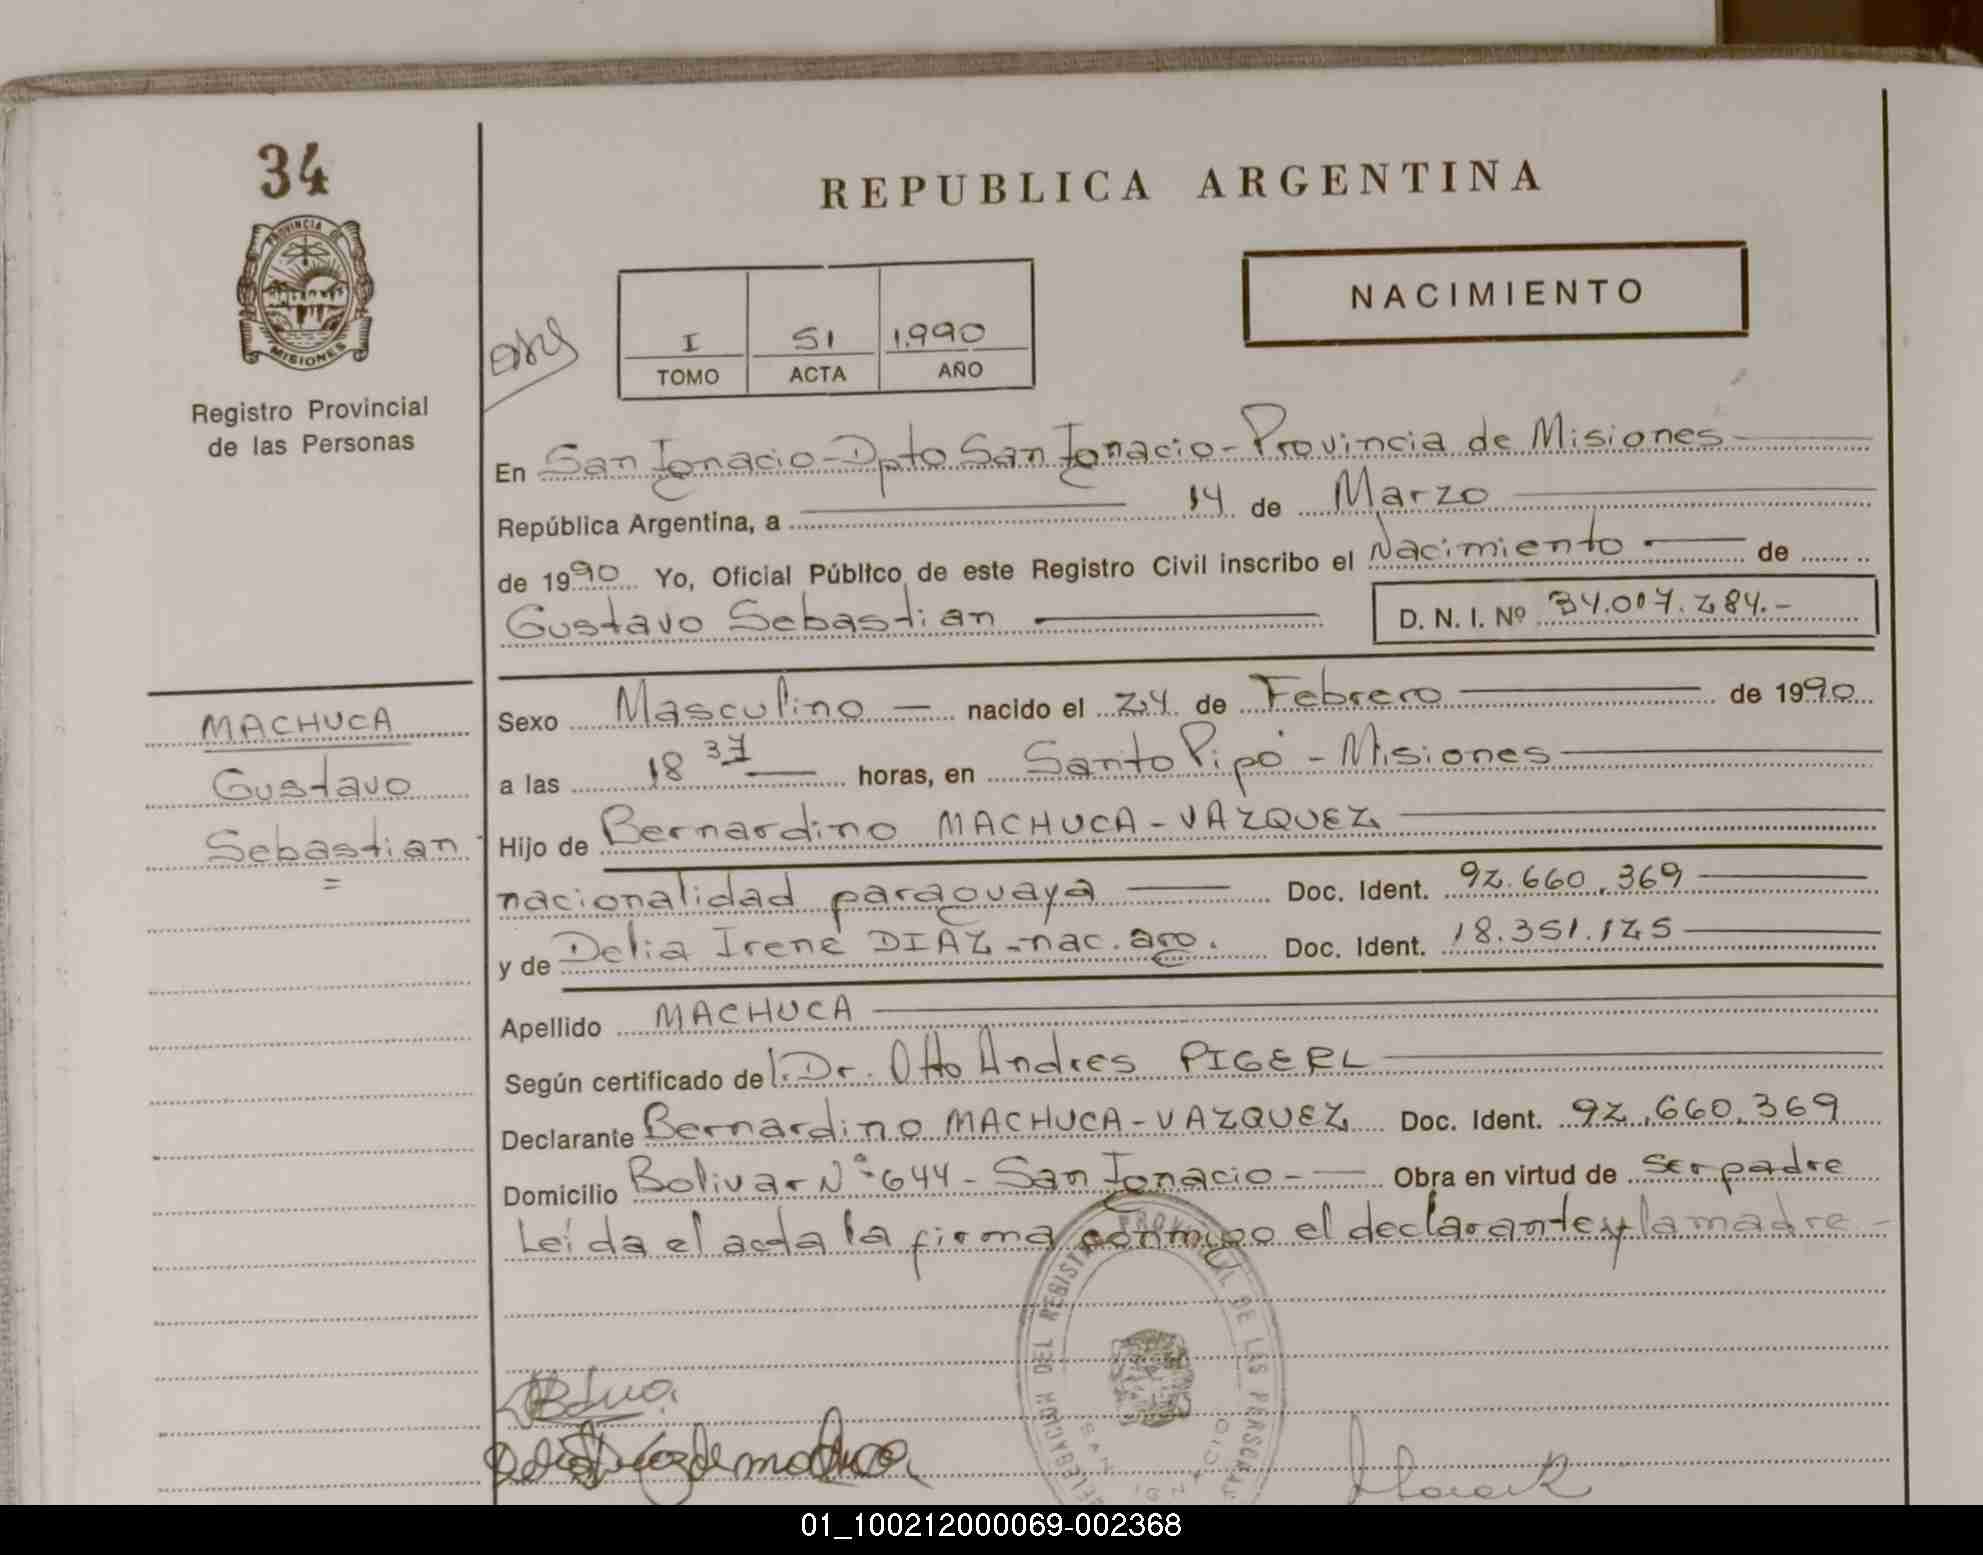 34
PROVINCIA DE
MISIONES
Registro Provincial
de las Personas
REPUBLICA ARGENTINA
NACIMIENTO
I 51 1.990
TOMO ACTA AÑO
En San Ignacio - Dpto San Ignacio - Provincia de Misiones
República Argentina, a 14 de Marzo
de 1990 Yo, Oficial Público de este Registro Civil inscribo el Nacimiento de
Gustavo Sebastian D. N. I. Nº 34.007.284.-
Sexo Masculino nacido el 24 de Febrero de 1990
a las 18 37 horas, en Santo Pipó - Misiones
Hijo de Bernardino MACHUCA - VAZQUEZ
nacionalidad paraguaya Doc. Ident. 92.660.369
y de Delia Irene DIAZ - nac. arg. Doc. Ident. 18.351.125
Apellido MACHUCA
Según certificado del: Dr. Otto Andres PIGERL
Declarante Bernardino MACHUCA - VAZQUEZ Doc. Ident. 92.660.369
Domicilio Bolivar Nº 644 - San Ignacio - Obra en virtud de ser padre
Leída el acta la firma conmigo el declarante y la madre -
MACHUCA
Gustavo
Sebastian
=
DELEGACION DEL REGISTRO PROVINCIAL DE LAS PERSONAS
SAN IGNACIO
01_100212000069-002368